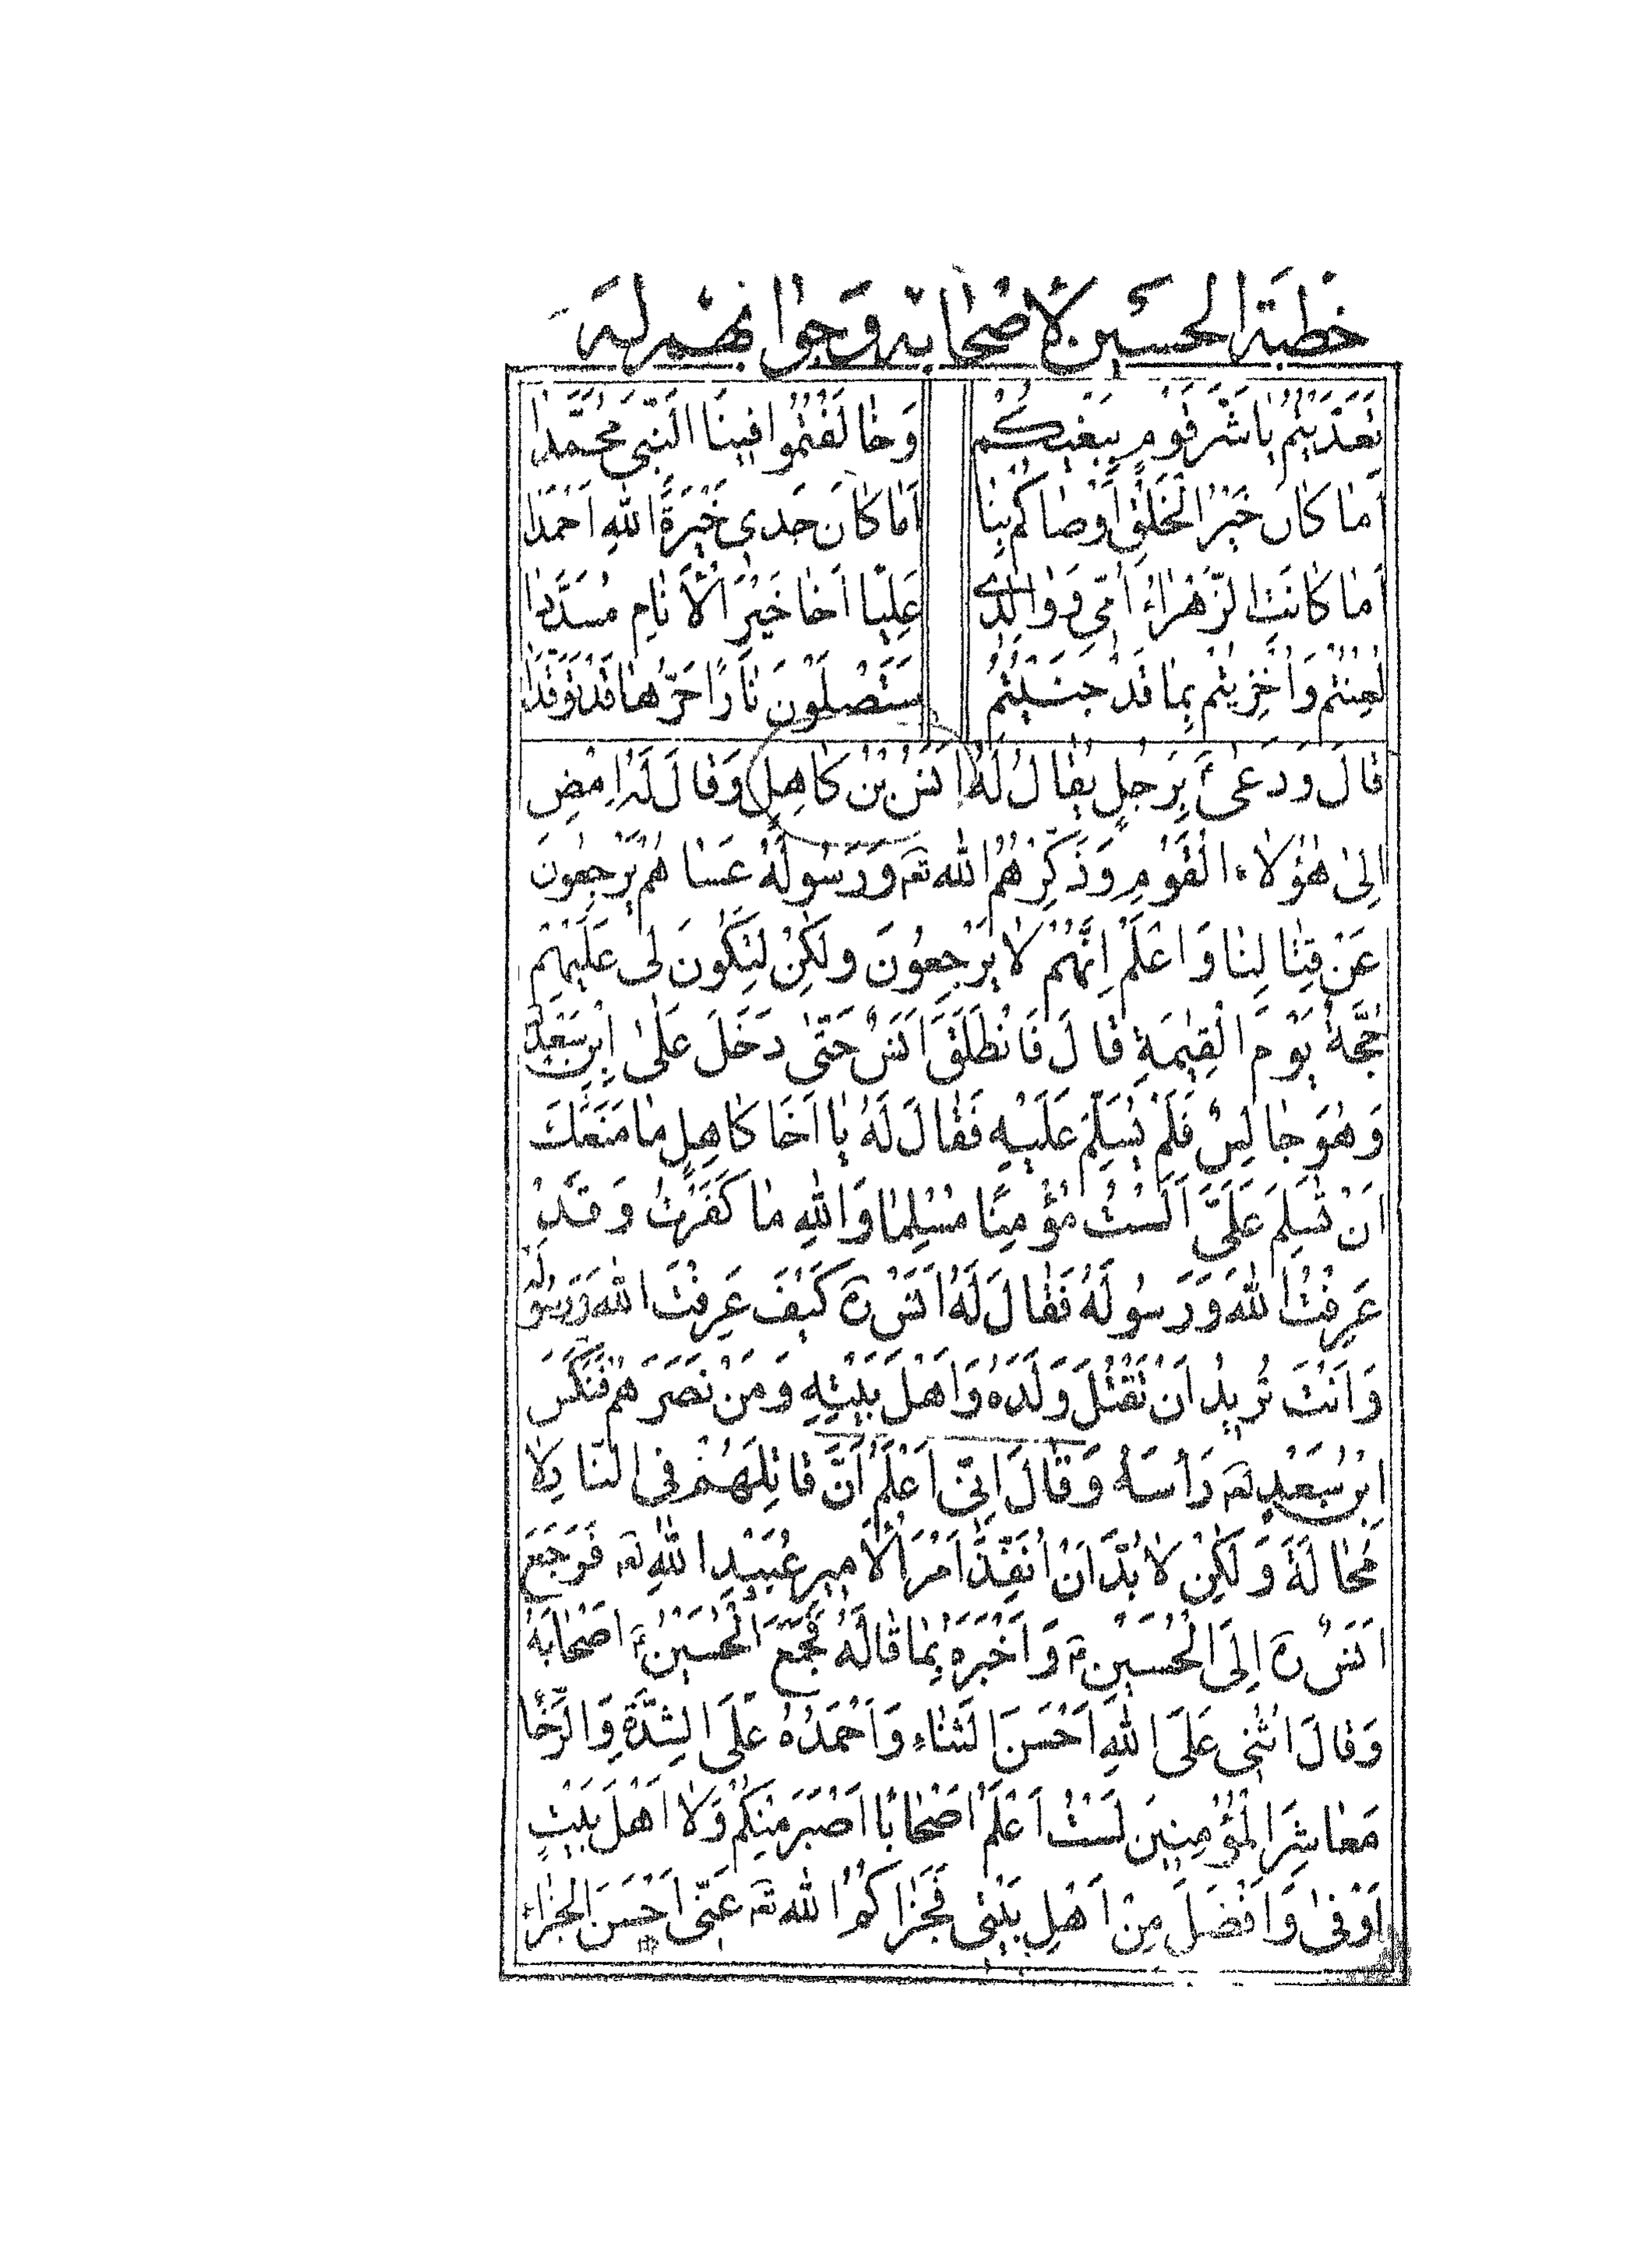 خطبة الحسين لاصحابه وجوابهم له
تَعَدَّيْتُمْ يا شَرَّ قَوْمٍ بِبَغْيِكُمْ وَخالَفْتُمُوا فينَا النَّبِىَّ مُحَمَّدا
اَما كانَ خَيْرُ الْخَلْقِ اَوْصاكُمْ بِنا اَما كانَ جَدّي خَيْرَةَ اللهِ اَحْمَدا
اَما كانَتِ الزَّهْراءُ اُمّي وَوالِدى عَلِيّا اَخا خَيْرِ الْاَنامِ مُسَدَّدا
لُعِنْتُمْ وَاُخْزيتُمْ بِما قَدْ جَنَيْتُمُ سَتَصْلَوْنَ نارًا حَرُّها قَدْ تَوَقَّدا
قالَ وَدَعىٰ ءَ بِرَجُلٍ يُقالُ لَهُ اَنَسُ بْنُ كاهِلٍ وَقالَ لَهُ اِمْضِ
اِلىٰ هٰؤُلاءِ الْقَوْمِ وَذَكِّرْهُمُ الله تعَ وَرَسُولَهُ عَسا هُمْ يَرْجِعُونَ
عَنْ قِتالِنا وَاعْلَمْ اِنَّهُمْ لا يَرْجِعُونَ ولكِنْ لِتَكُونَ لى عَلَيْهِمْ
حُجَّةُ يَوْمَ الْقِيٰمَةِ قالَ فَانْطَلَقَ اَنَسٌ حَتّى دَخَلَ عَلىٰ ابْنِ سَعْدٍ لَعَ
وَهُوَ جالِسٌ فَلَمْ يُسَلِّمْ عَلَيْهِ فَقالَ لَهُ يا اَخا كاهِلٍ ما مَنَعَكَ
اَنْ تُسَلِّمَ عَلَىَّ اَلَسْتُ مُؤْمِنًا مُسْلِمًا وَاللهِ ما كَفَرْتُ وَقَدْ
عَرِفْتُ اللهَ وَرَسُولَهُ فَقالَ لَهُ اَنَسٌ رَه كَيْفَ عَرِفْتَ اللهَ وَرَسُولَهُ
وَاَنْتَ تُريدُ اَنْ تَقْتُلَ وَلَدَهُ وَاَهْلَ بَيْتِهِ وَمَنْ نَصَرَهُمْ فَنَكَسَ
ابْنُ سَعْدٍ لعَ رَأسَهُ وَقالَ اِنّى اَعْلَمُ اَنَّ قاتِلَهُمْ فِى النّارِ لا
مَحالَةَ وَلكِنْ لا بُدَّ اَنْ اُنَفِّذَ اَمْرَ الْاَميرِ عُبَيْدِ اللهِ لعَ فَرَجَعَ
اَنَسٌ رَه اِلَى الْحُسَيْنِ عَ وَاَخْبَرَهُ بِما قالَهُ فَجَمَعَ الْحُسَيْنُ عَ اَصْحابَهُ
وَقالَ اُثْنى عَلَى اللهِ اَحْسَنَ الثَّناءِ وَاَحْمَدُهُ عَلَى الشِّدَّةِ وَالرَّخا
مَعاشِرَ الْمُؤْمِنينَ لَسْتُ اَعْلَمُ اَصْحابًا اَصْبَرَ مِنْكُمْ وَلا اَهْلَ بَيْتٍ
اَوْفىٰ وَاَفْضَلَ مِنْ اَهْلِ بَيْتى فَجَزاكُمُ الله تعَ عَنّى اَحْسَنَ الْجَزاءِ